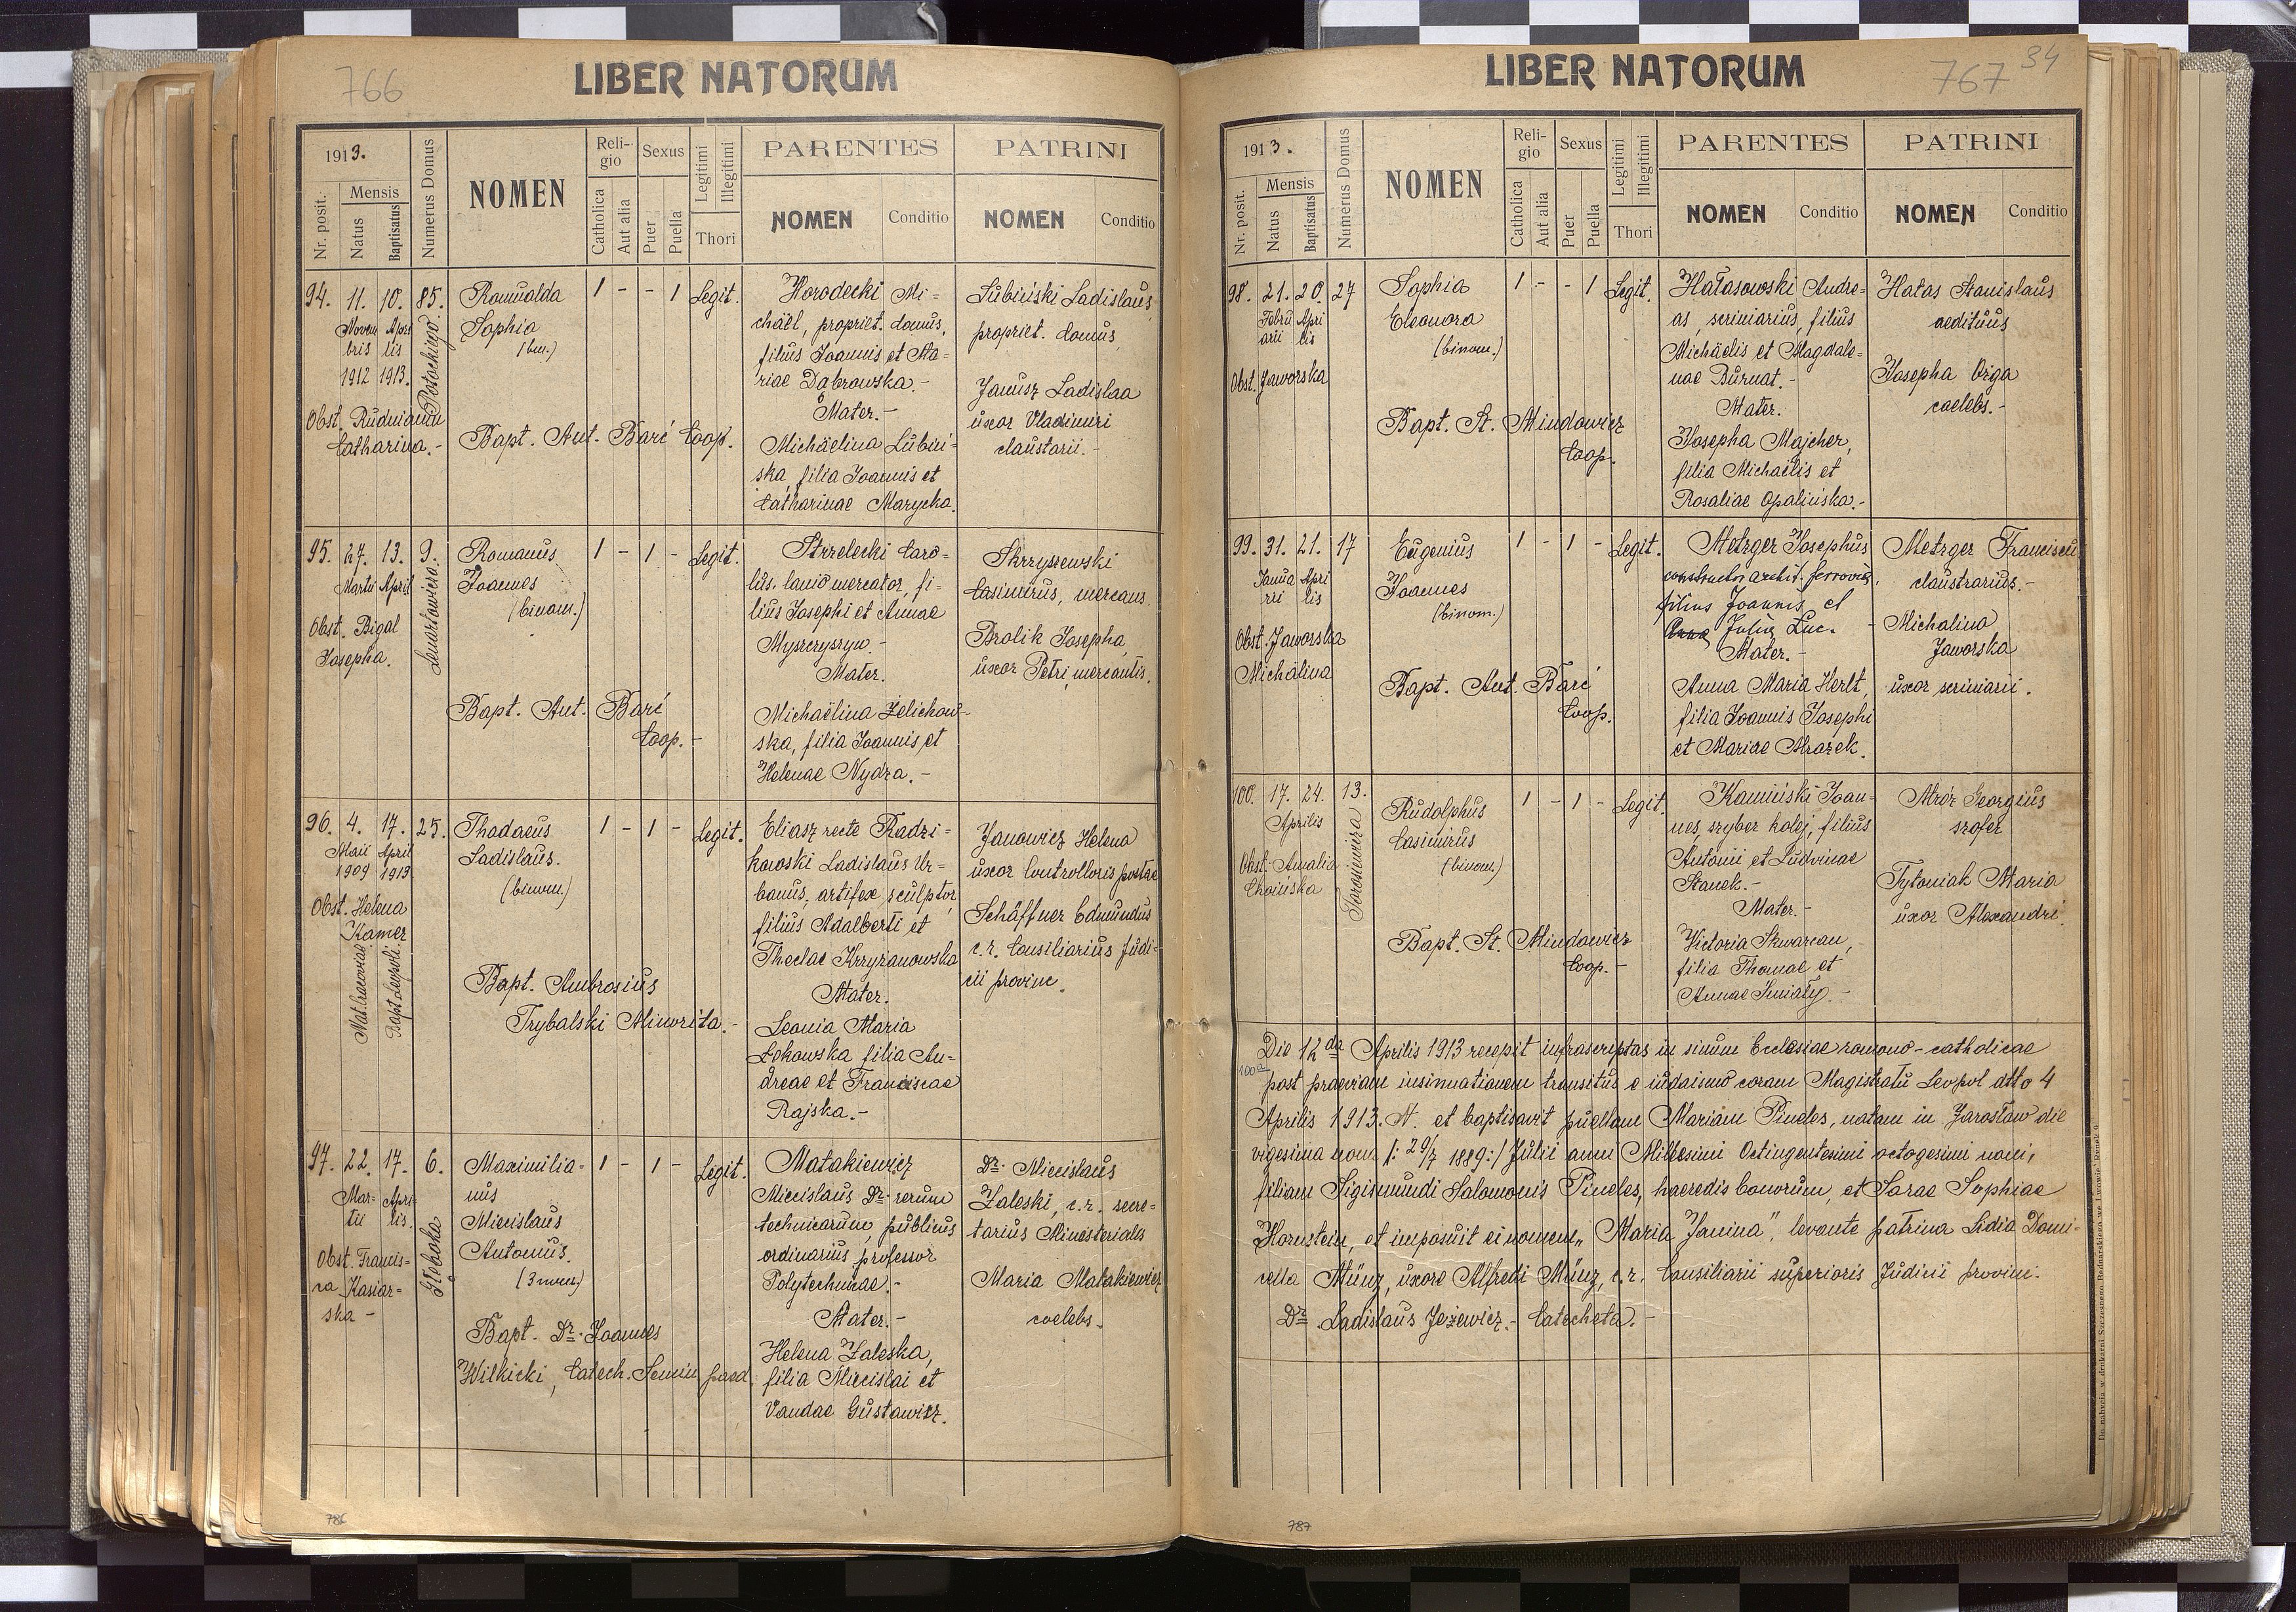 766
LIBER NATORUM
1913.
Nr. posit.
Mensis
Natus
Baptisatus
Numerus Domus
NOMEN
Religio
Catholica
Aut alia
Sexus
Puer
Puella
Legitimi
Illegitimi
Thori
PARENTES
NOMEN
Conditio
PATRINI
NOMEN
Conditio
94. 11. 10. 85.
Novem Apri
bris lis
1912 1913.
Potockiego
Obst. Rudnianyn
Catharina.-
Romualda
Sophia
(bin.)
Bapt. Ant. Barć Coop.
1 - - 1 Legit.
Horodecki Mi=
chaël, propriet. domus,
filius Joannis et Ma=
riae Dąbrowska.-
Mater.-
Michaëlina Lubiń-
ska, filia Joannis et
Catharinae Marycka.
Lubiński Ladislaus,
propriet. domus
Janusz Ladislaa
uxor Vladimiri
claustarii.-
95. 27. 13. 9.
Martii April
Lenartowicza.
Obst. Bigal
Josepha.
Romanus
Joannes
(binom.)
Bapt. Ant. Barć
Coop.-
1 - 1 - Legit.
Strzelecki Caro=
lus, lanio mercator, fi-
lius Josephi et Annae
Myszczyszyn.-
Mater.
Michaëlina Zelichow-
ska, filia Joannis et
Helenae Nydza.-
Skrzyszewski
Casimirus, mercans.
Brolik Josepha,
uxor Petri mercantis.
96. 4. 17. 25.
Maii April
1909 1913
Obst. Helena
Kamer
Nat. Cracoviae
Bapt. Leopoli.
Thadaeus
Ladislaus.
(binom.)
Bapt. Ambrosius
Trybalski Minorita.-
1 - 1 - Legit.
Eliasz recte Radzi-
kowski Ladislaus Ur=
banus, artifex sculptor,
filius Adalberti et
Theclae Krzyżanowska
Mater.
Leonia Maria
Łekowska filia An=
dreae et Franciscae
Rajska.-
Janowicz Helena
uxor Controlloris postae
Schäffner Edmundus
c.r. Consiliarius Judi=
cii provinc.
97. 22. 17. 6.
Mar- Apri-
tii lis.
Głęboka
Obst. Francis=
ca Kasiar-
ska -
Maximilia-
nus
Miecislaus
Antonius.
(3 nom.)
Bapt. Dr. Joannes
Wilkicki, Catech. Semin paed.
1 - 1 - Legit.
Matakiewicz
Miecislaus Dr. rerum
technicarum, publicus
ordinarius professor
Polytechnicae.-
Mater.-
Helena Zaleska,
filia Miecislai et
Vandae Gustawicz.
Dr. Miecislaus
Zaleski, c.r. secre=
tarius Ministerialis
Maria Matakiewicz
coelebs.
786
767 34
LIBER NATORUM
1913.
Nr. posit.
Mensis
Natus
Baptisatus
Numerus Domus
NOMEN
Religio
Catholica
Aut alia
Sexus
Puer
Puella
Legitimi
Illegitimi
Thori
PARENTES
NOMEN
Conditio
PATRINI
NOMEN
Conditio
98. 21. 20. 27
Febru Apri
arii lis
Obst. Jaworska
Sophia
Eleonora
(binom.)
Bapt. St. Mindowicz
Coop.
1 - - 1 Legit.
Hałasowski Andre=
as, scriniarius, filius
Michäelis et Magdale=
nae Burnat.-
Mater.
Josepha Majcher,
filia Michaëlis et
Rosaliae Opalińska.-
Hałas Stanislaus
aedituus
Josepha Oryga
coelebs.-
99. 31. 21. 17
Janua Apri
rii lis
Obst. Jaworska
Michalina
Eugenius
Joannes
(binom.)
Bapt. Ant. Barć
Coop.
1 - 1 - Legit.
Metzger Josephus
constructor archit. ferrovia,
filius Joannis et
Anna Julia Luc.-
Mater.-
Anna Maria Herlt,
filia Joannis Josephi
et Mariae Mrazek.
Metzger Franciscu
claustrarius.-
Michalina
Jaworska
uxor scriniarii.
100. 17. 24. 13.
Aprilis
Obst. Amalia
Choińska
Rudolphus
Casimirus
(binom.)
Bapt. St. Mindowicz
Coop.-
1 - 1 - Legit.
Kamiński Joan=
nes, szyber kolej, filius
Antonii et Ludvinae
Stanek.-
Mater.-
Victoria Skwarcan,
filia Thomae et
Annae Śmiały.-
Mróz Georgius
szofer
Tytoniak Maria
uxor Alexandri.
100a
Die 12da Aprilis 1913 recepit infrascriptas in sinum Ecclesiae romano-catholicae
post praeviam insinuationem transitus e iudaismo coram Magistratu Leopol dtto 4
Aprilis 1913. N. et baptisavit puellam Mariam Pineles, natam in Jarosław die
vigesima nona /: 29/7 1889:/ Julii anni Millesimi Octingentesimi octogesimi noni,
filiam Sigismundi Salomonis Pineles, haeredis bonorum, et Sarae Sophiae
Hornstein, et imposuit ei nomen „Maria Janina", levante patrina Lidia Domi-
cella Münz, uxore Alfredi Münz, c.r. Consiliarii superioris Judicii provinc.
Dr. Ladislaus Jeżewicz.- Catecheta.-
Do nabycia w drukarni Szczęsnego Bednarskiego we Lwowie, Rynek 9.
787